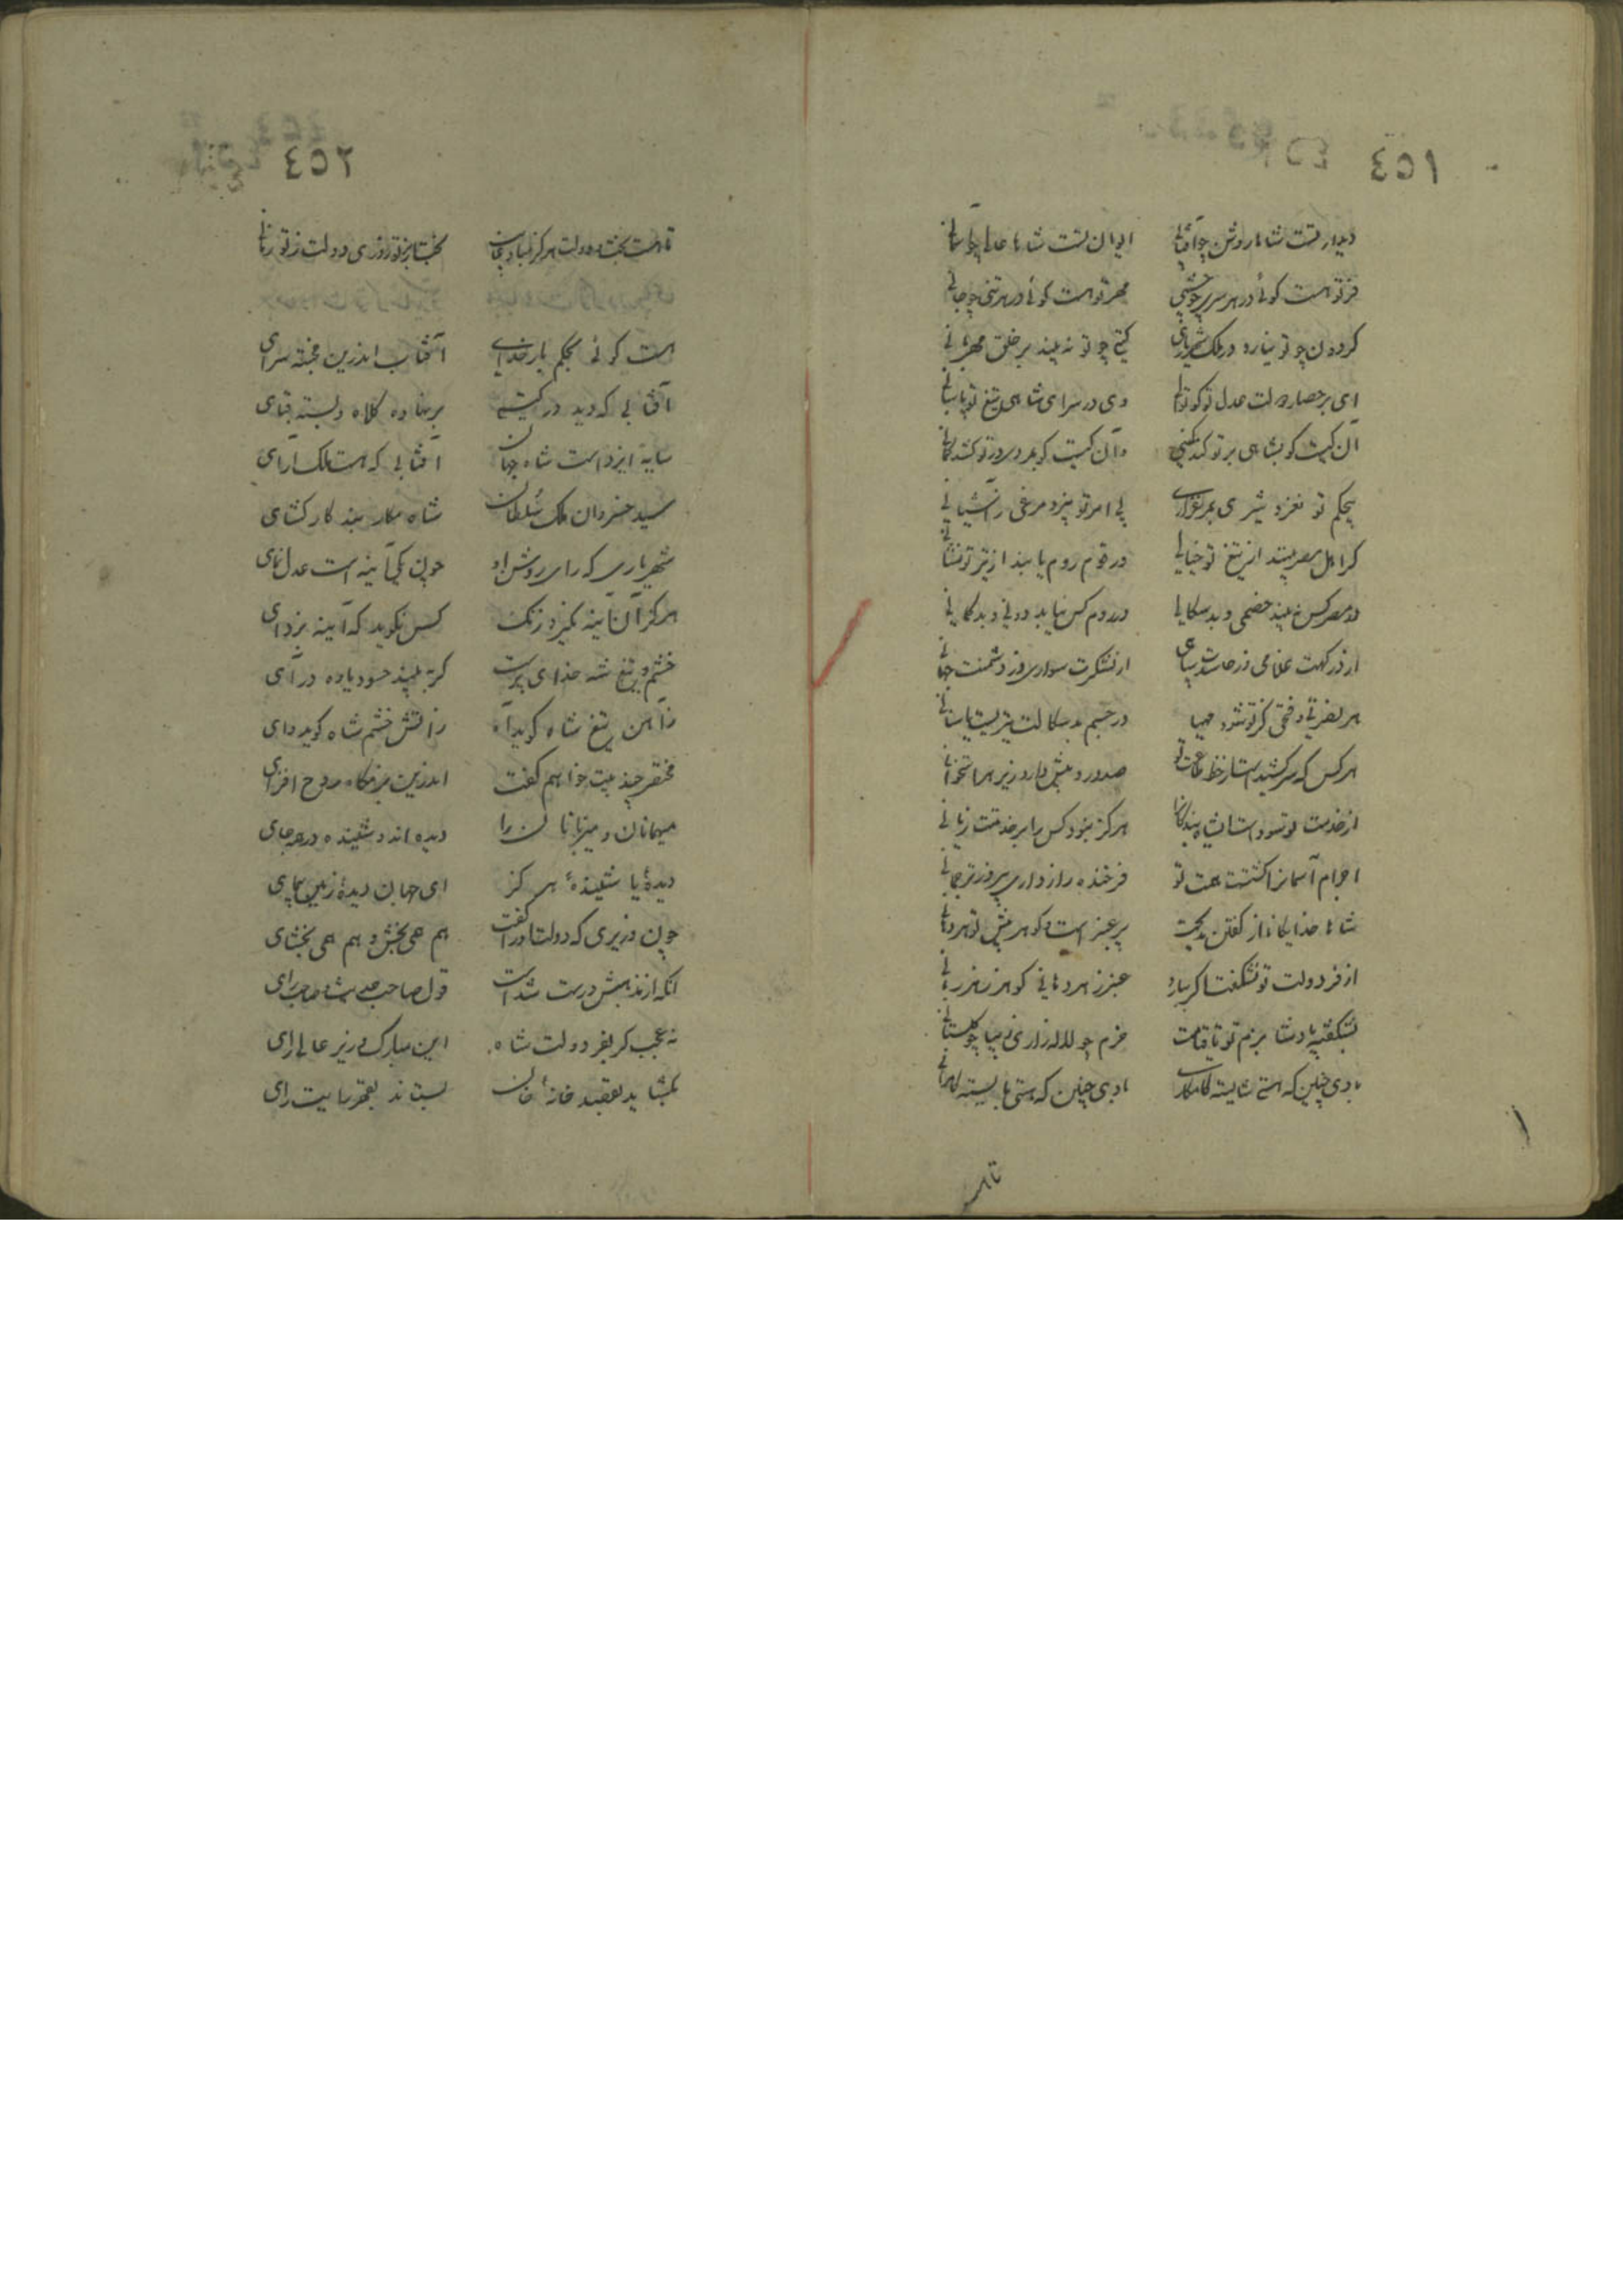 ٤٥١
دیدار تست شاها روشن چو آفتابی ایوان تست شاها عالی چو آسمانی
فر تو هست گوئی در هر سری چو چشمی مهر تو هست گوئی در هر تنی چو جانی
گردون چو تو نیارد در ملک شهریاری گیتی چو تو نه بیند بر خلق مهربانی
ای بر حصار دولت عدل تو کوتوالی وی در سرای شاهی تیغ تو پاسبانی
آن کیست کو بشاهی بر تو کند کمینی وان کیست کو بمردی بر تو کشد کمانی
بیحکم تو نغرد شیری بمرغزاری بی امر تو نپرد مرغی ز آشیانی
گر اهل مصر بیند از تیغ تو خیالی ور قوم روم یابند از تیر تو نشانی
در مصر کس نبیند خصمی و بدسگالی در روم کس نیابد دونی و بدگمانی
از درگهت غلامی وز حاسدت سپاهی از لشکرت سواری وز دشمنت جهانی
هر نصرتی و فتحی کز تو شود مهیا در جسم بدسگالت تیریست یا سنانی
هر کس که سر کشیدست از خط طاعت تو صد درد بیش دارد زیر هر استخوانی
از خدمت تو سودست ای شاه بندگانرا هرگز نبود کس را بر خدمتت زیانی
اجرام آسمانرا گشتست همت تو فرخنده رازداری پیروز ترجمانی
شاها خدایگانا از گفتن مدیحت پر عنبر است و گوهر پیش تو هر دهانی
از فر دولت تو نشگفت اگر ببارد عنبر ز هر دهانی گوهر ز هر زبانی
بشکفته باد شاها بزم تو تا قیامت خرم چو لاله زاری زیبا چو گلستانی
بادی چنین که هستی شایسته کامکاری بادی چنین که هستی بایسته کامرانی
تا هست
٤٥٢
تا هست بخت و دولت هرگز مباد بی تو بخت از تو روزی دولت ز تو زمانی
هست گوئی بحکم بار خدای آفتاب اندرین خجسته سرای
آفتابی که دید در گیتی بر نهاده کلاه و بسته قبای
سایه ایزد است شاه جهان آفتابی که هست ملک آرای
سید خسروان ملک سلطان شاه مکار بند کار گشای
شهریاری که رای روشن او چون یکی آینه است عدل نمای
هرگز آن آینه نگیرد زنگ کس نگوید که آینه بزدای
خشم و تیغ شه خدای پرست گر به بیند حسود یاوه درای
ز آهن تیغ شاه گوید آه ز آتش خشم شاه گوید وای
مختصر چند بیت خواهم گفت اندرین بزمگاه روح افزای
میهمانان و میزبانان را دیده اند و شنیده در هر جای
دیدهٔ یا شنیدهٔ هرگز ای جهان دیدهٔ زمین پیمای
چون وزیری که دولت او را گفت هم همی بخش و هم همی بخشای
آنکه از مذهبش درست شداست قول صاحب حدیث و صاحب رای
نه عجب گر بفر دولت شاه این مبارک وزیر عالی رای
بگشاید بعقد خانهٔ خان بستاند بقهر رایت رای